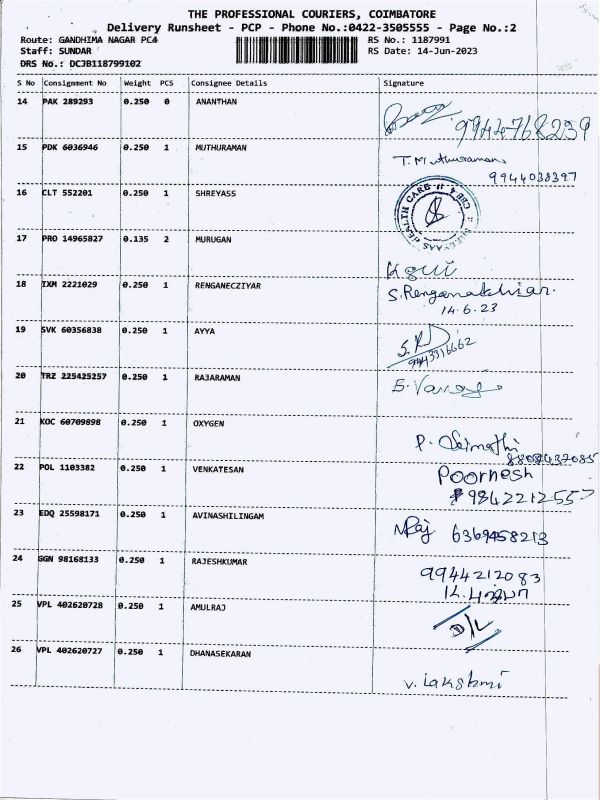 THE PROFESSIONAL COURIERS, COIMBATORE
Delivery Runsheet - PCP - Phone No.:0422-3505555 - Page No.:2
Route: GANDHIMA NAGAR PC4 RS No.: 1187991
Staff: SUNDAR RS Date: 14-Jun-2023
DRS No.: DCJB118799102
S No Consignment No Weight PCS Consignee Details Signature
14 PAK 289293 0.250 0 ANANTHAN
9944768239
15 PDK 6036946 0.250 1 MUTHURAMAN
T. Muthuraman
9944038397
16 CLT 552201 0.250 1 SHREYASS
HEALTH CARE
17 PRO 14965827 0.135 2 MURUGAN
18 IXM 2221029 0.250 1 RENGANECZIYAR
S. Renganakhiar.
14.6.23
19 SVK 60356838 0.250 1 AYYA
9443316662
20 TRZ 225425257 0.250 1 RAJARAMAN
21 KOC 60709898 0.250 1 OXYGEN
P.
8808437085
22 POL 1103382 0.250 1 VENKATESAN
Poornesh
9842212557
23 EDQ 25598171 0.250 1 AVINASHILINGAM
Raj 6369458213
24 GGN 98168133 0.250 1 RAJESHKUMAR
9944212083
25 VPL 402620728 0.250 1 AMULRAJ
D/L
26 VPL 402620727 0.250 1 DHANASEKARAN
V. Lakshmi